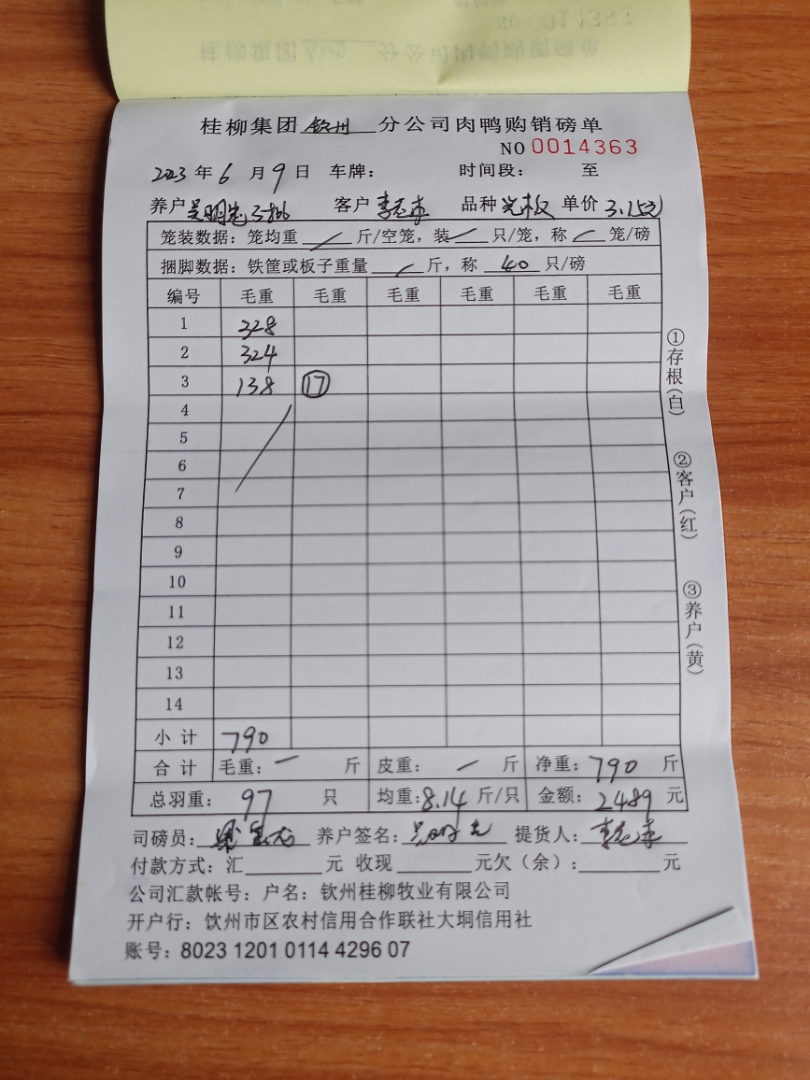 桂柳集团 钦州 分公司肉鸭购销磅单
NO 0014363
2023 年 6 月 9 日 车牌： 时间段： 至
养户 吴明志 客户 品种 光板 单价 3.15元
笼装数据：笼均重 / 斤/空笼，装 / 只/笼，称 / 笼/磅
捆脚数据：铁筐或板子重量 / 斤，称 40 只/磅
编号 毛重 毛重 毛重 毛重 毛重 毛重
1 328
2 324
3 138 17
4
5
6
7
8
9
10
11
12
13
14
小计 790
合计 毛重：一 斤 皮重：一 斤 净重：790 斤
总羽重： 97 只 均重：8.14 斤/只 金额：2489 元
司磅员： 养户签名： 提货人：
付款方式：汇 元 收现 元欠（余）： 元
公司汇款帐号：户名：钦州桂柳牧业有限公司
开户行：饮州市区农村信用合作联社大垌信用社
账号：8023 1201 0114 4296 07
①存根（白）
②客户（红）
③养户（黄）